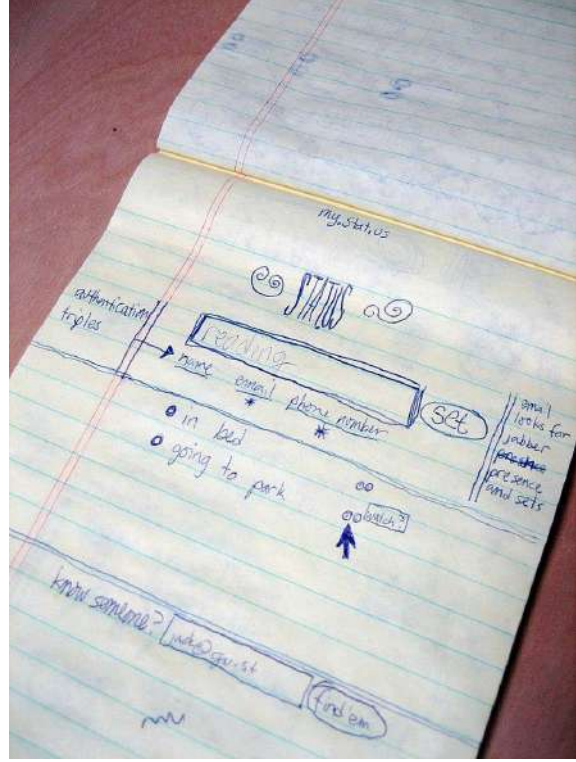 my.stat.us
STATUS
authentication
triples
reading
name email phone number
set
email
looks for
jabber
presence
and sets
in bed
going to park
watch?
know someone?
find'em